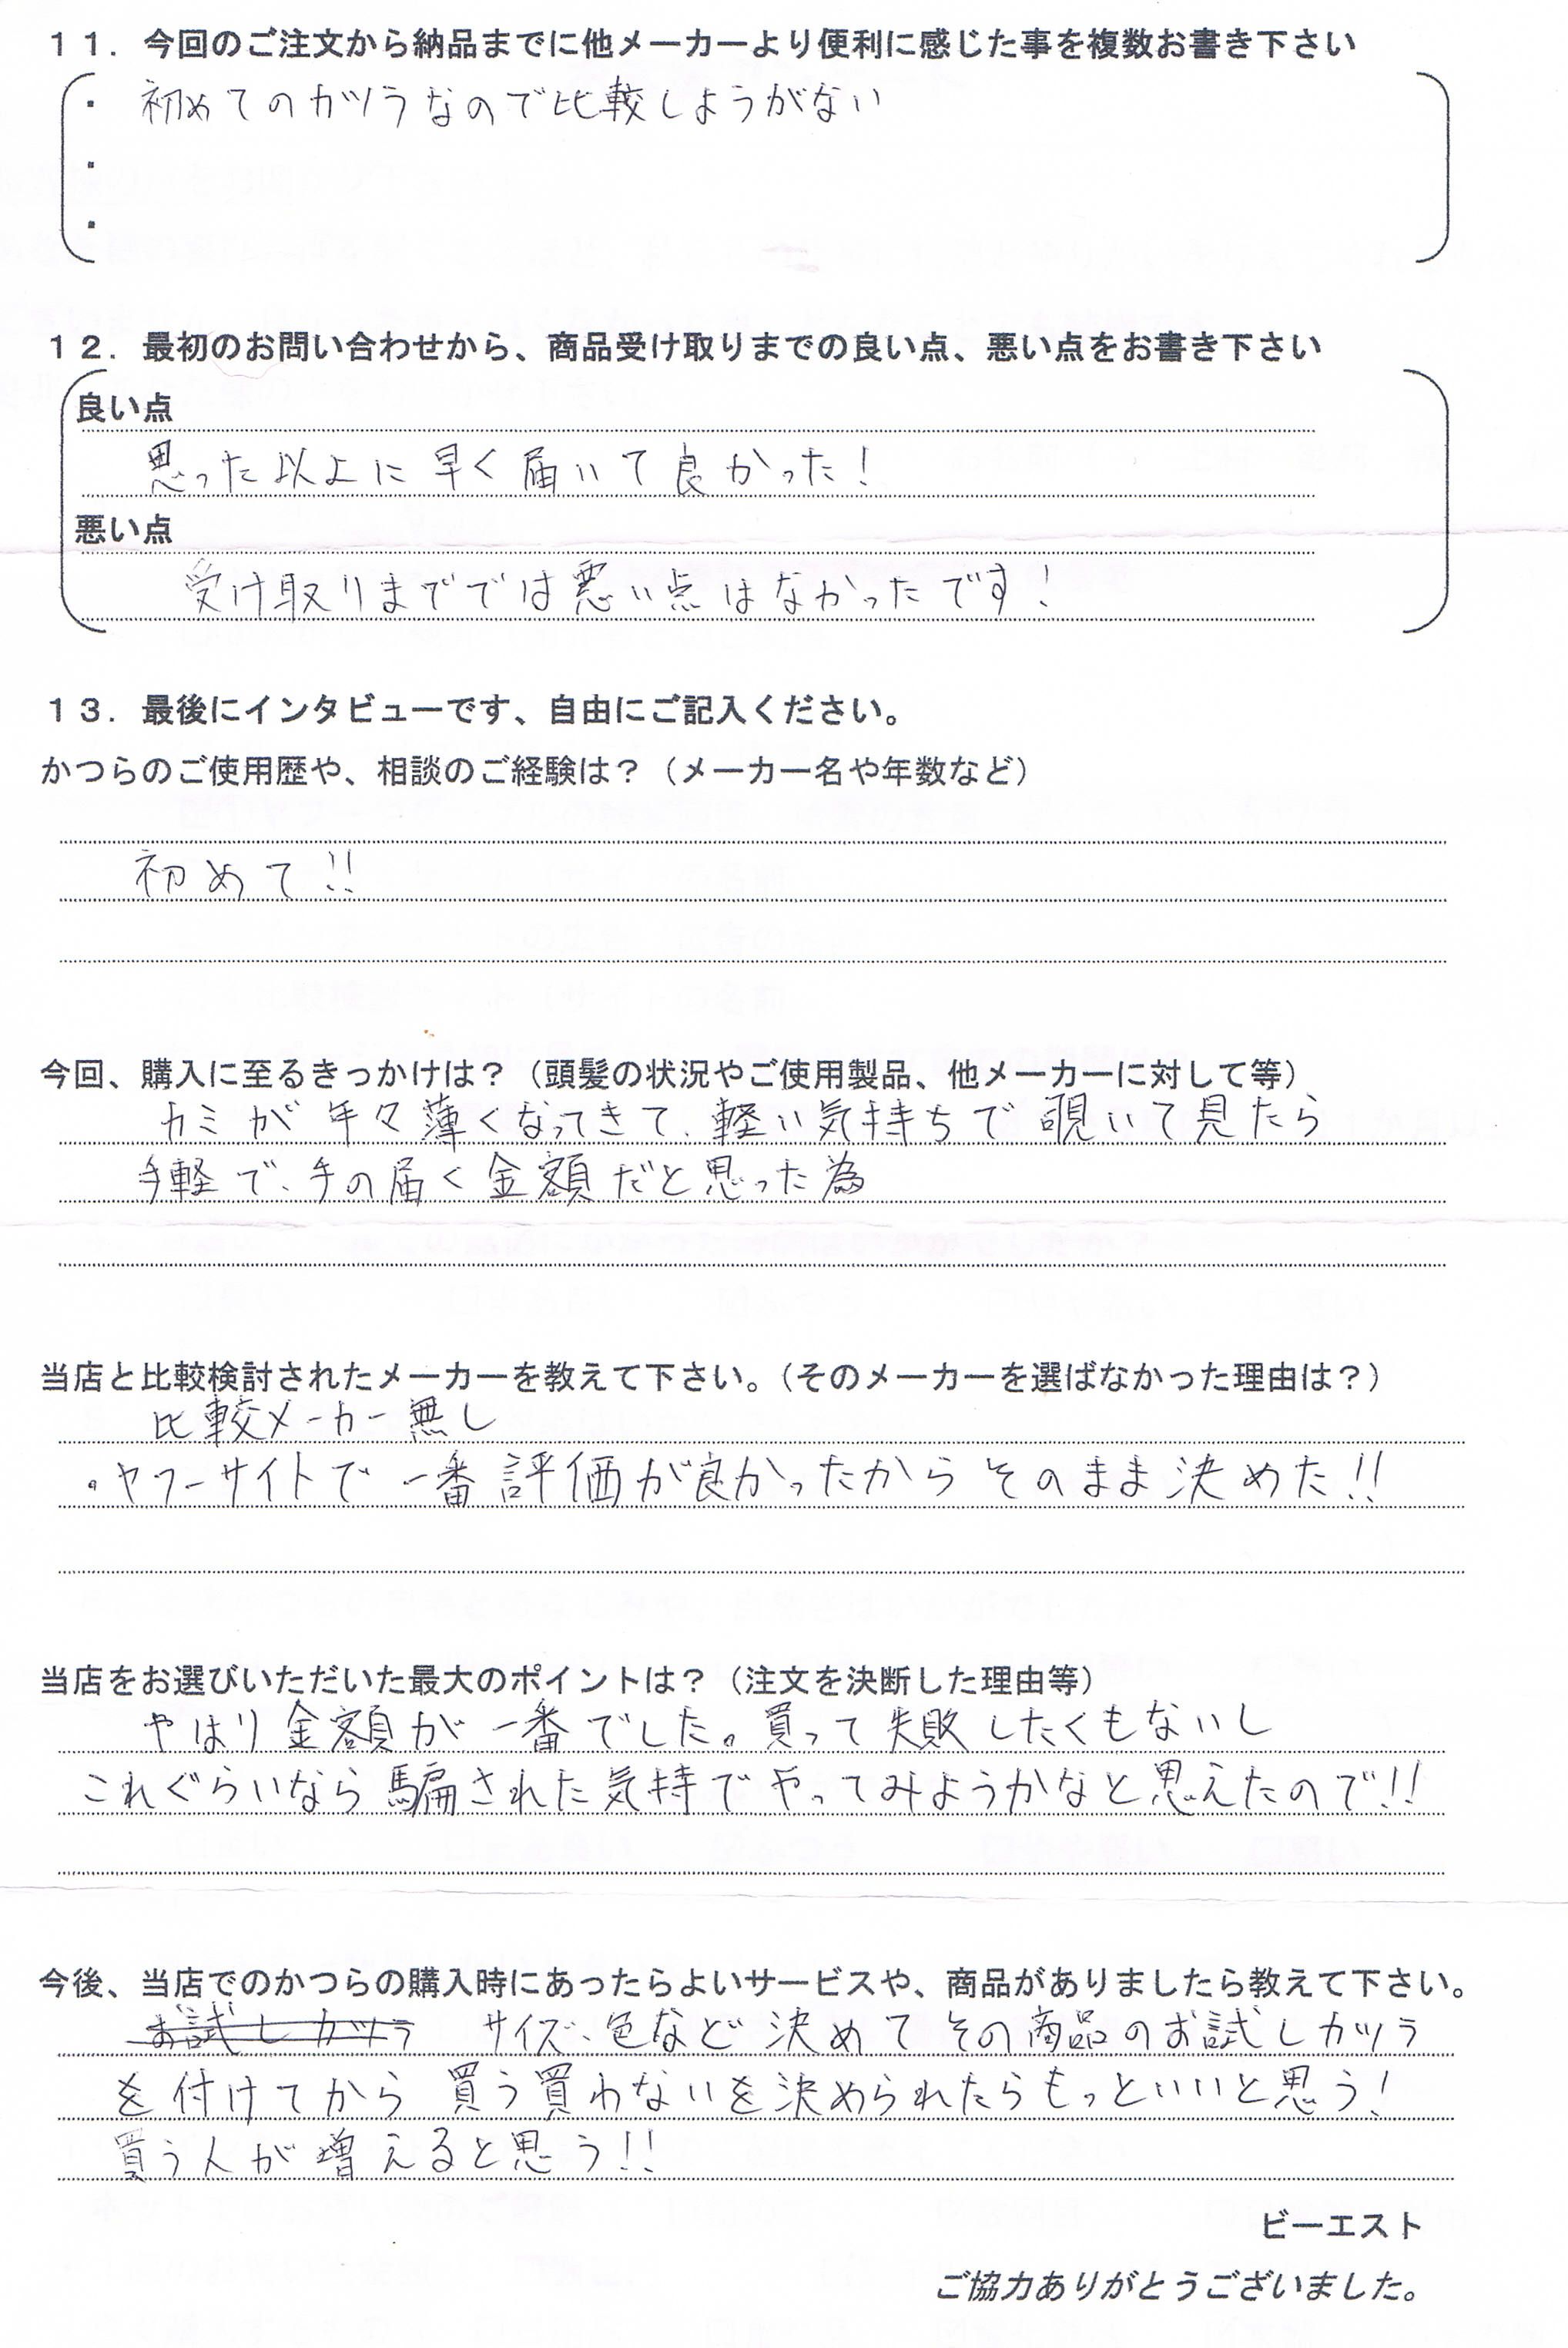 １１．今回のご注文から納品までに他メーカーより便利に感じた事を複数お書き下さい
・ 初めてのカツラなので比較しようがない
・
・
１２．最初のお問い合わせから、商品受け取りまでの良い点、悪い点をお書き下さい
良い点
思った以上に早く届いて良かった！
悪い点
受け取りまででは悪い点はなかったです！
１３．最後にインタビューです、自由にご記入ください。
かつらのご使用歴や、相談のご経験は？（メーカー名や年数など）
初めて!!
今回、購入に至るきっかけは？（頭髪の状況やご使用製品、他メーカーに対して等）
カミが年々薄くなってきて、軽い気持ちで覗いて見たら
手軽で、手の届く金額だと思った為
当店と比較検討されたメーカーを教えて下さい。（そのメーカーを選ばなかった理由は？）
比較メーカー無し
・ヤフーサイトで一番評価が良かったからそのまま決めた!!
当店をお選びいただいた最大のポイントは？（注文を決断した理由等）
やはり金額が一番でした。買って失敗したくもないし
これぐらいなら騙された気持でやってみようかなと思えたので!!
今後、当店でのかつらの購入時にあったらよいサービスや、商品がありましたら教えて下さい。
お試しカツラ サイズ、色など決めてその商品のお試しカツラ
を付けてから買う買わないを決められたらもっといいと思う！
買う人が増えると思う!!
ビーエスト
ご協力ありがとうございました。